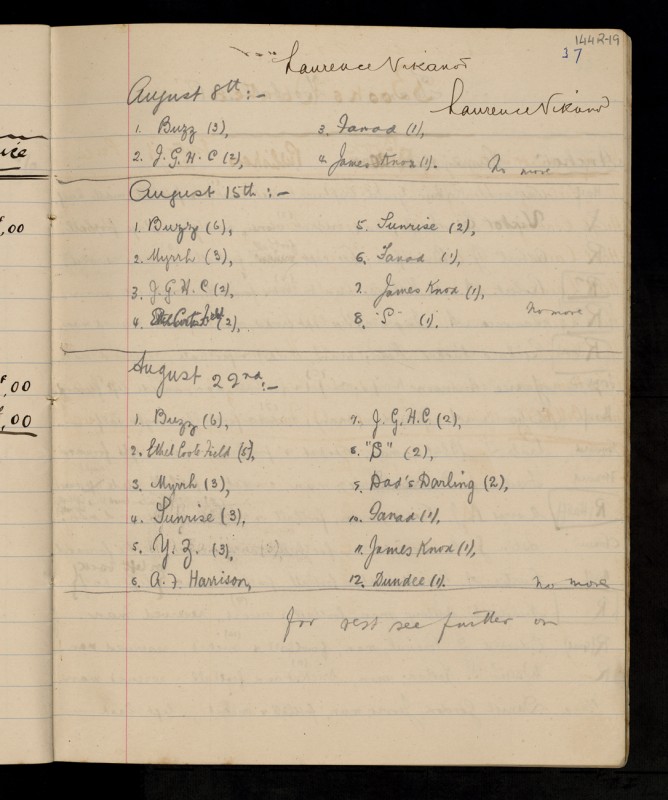 1442-19
37
Laurence Nikanor
Laurence Nikanor
August 8th :-
1. Buzz (3),
2. J.G.H.C (2),
3. Fanad (1),
4. James Knox (1).
No more
August 15th :-
1. Buzz (6),
2. Myrrh (3),
3. J.G.H.C (2),
4. Ethel Coots Field (2),
5. Sunrise (2),
6. Fanad (1),
7. James Knox (1),
8. "S" (1).
No more
August 22nd :-
1. Buzz (6),
2. Ethel Coots Field (5),
3. Myrrh (3),
4. Sunrise (3),
5. Y.Z. (3),
6. A.F. Harrison,
7. J.G.H.C (2),
8. "S" (2),
9. Dad's Darling (2),
10. Fanad (1),
11. James Knox (1),
12. Dundee (1).
No more
for rest see further on
,00
,00
,00